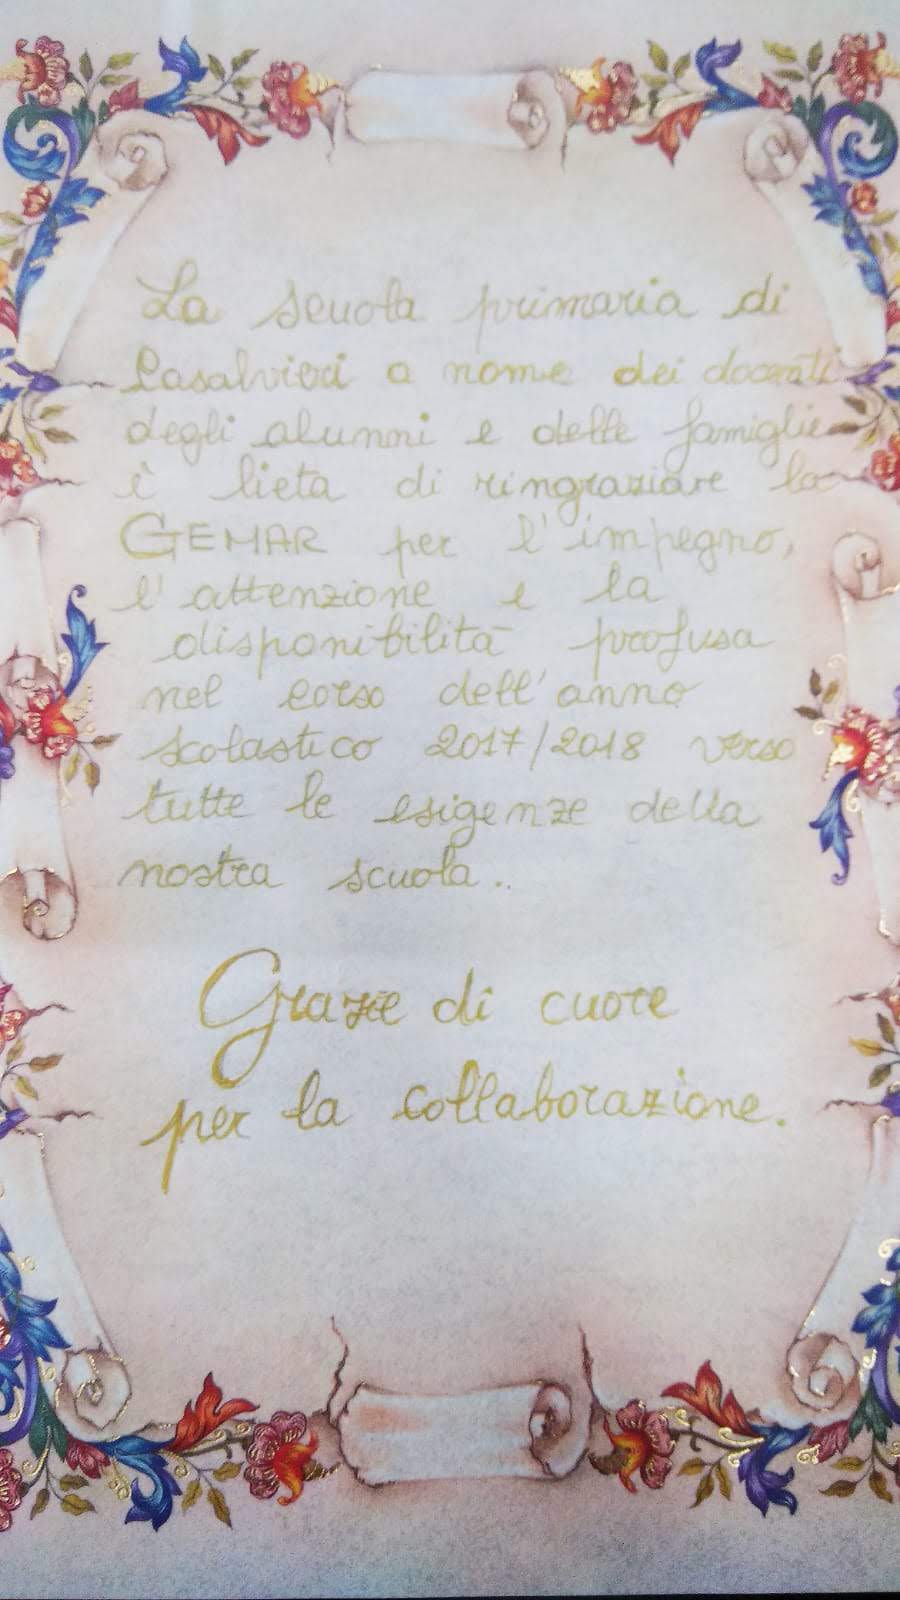 La scuola primaria di
Casalvieri a nome dei docenti
degli alunni e delle famiglie
è lieta di ringraziare la
GEMAR per l'impegno,
l'attenzione e la
disponibilità profusa
nel corso dell'anno
scolastico 2017/2018 verso
tutte le esigenze della
nostra scuola..
Grazie di cuore
per la collaborazione.